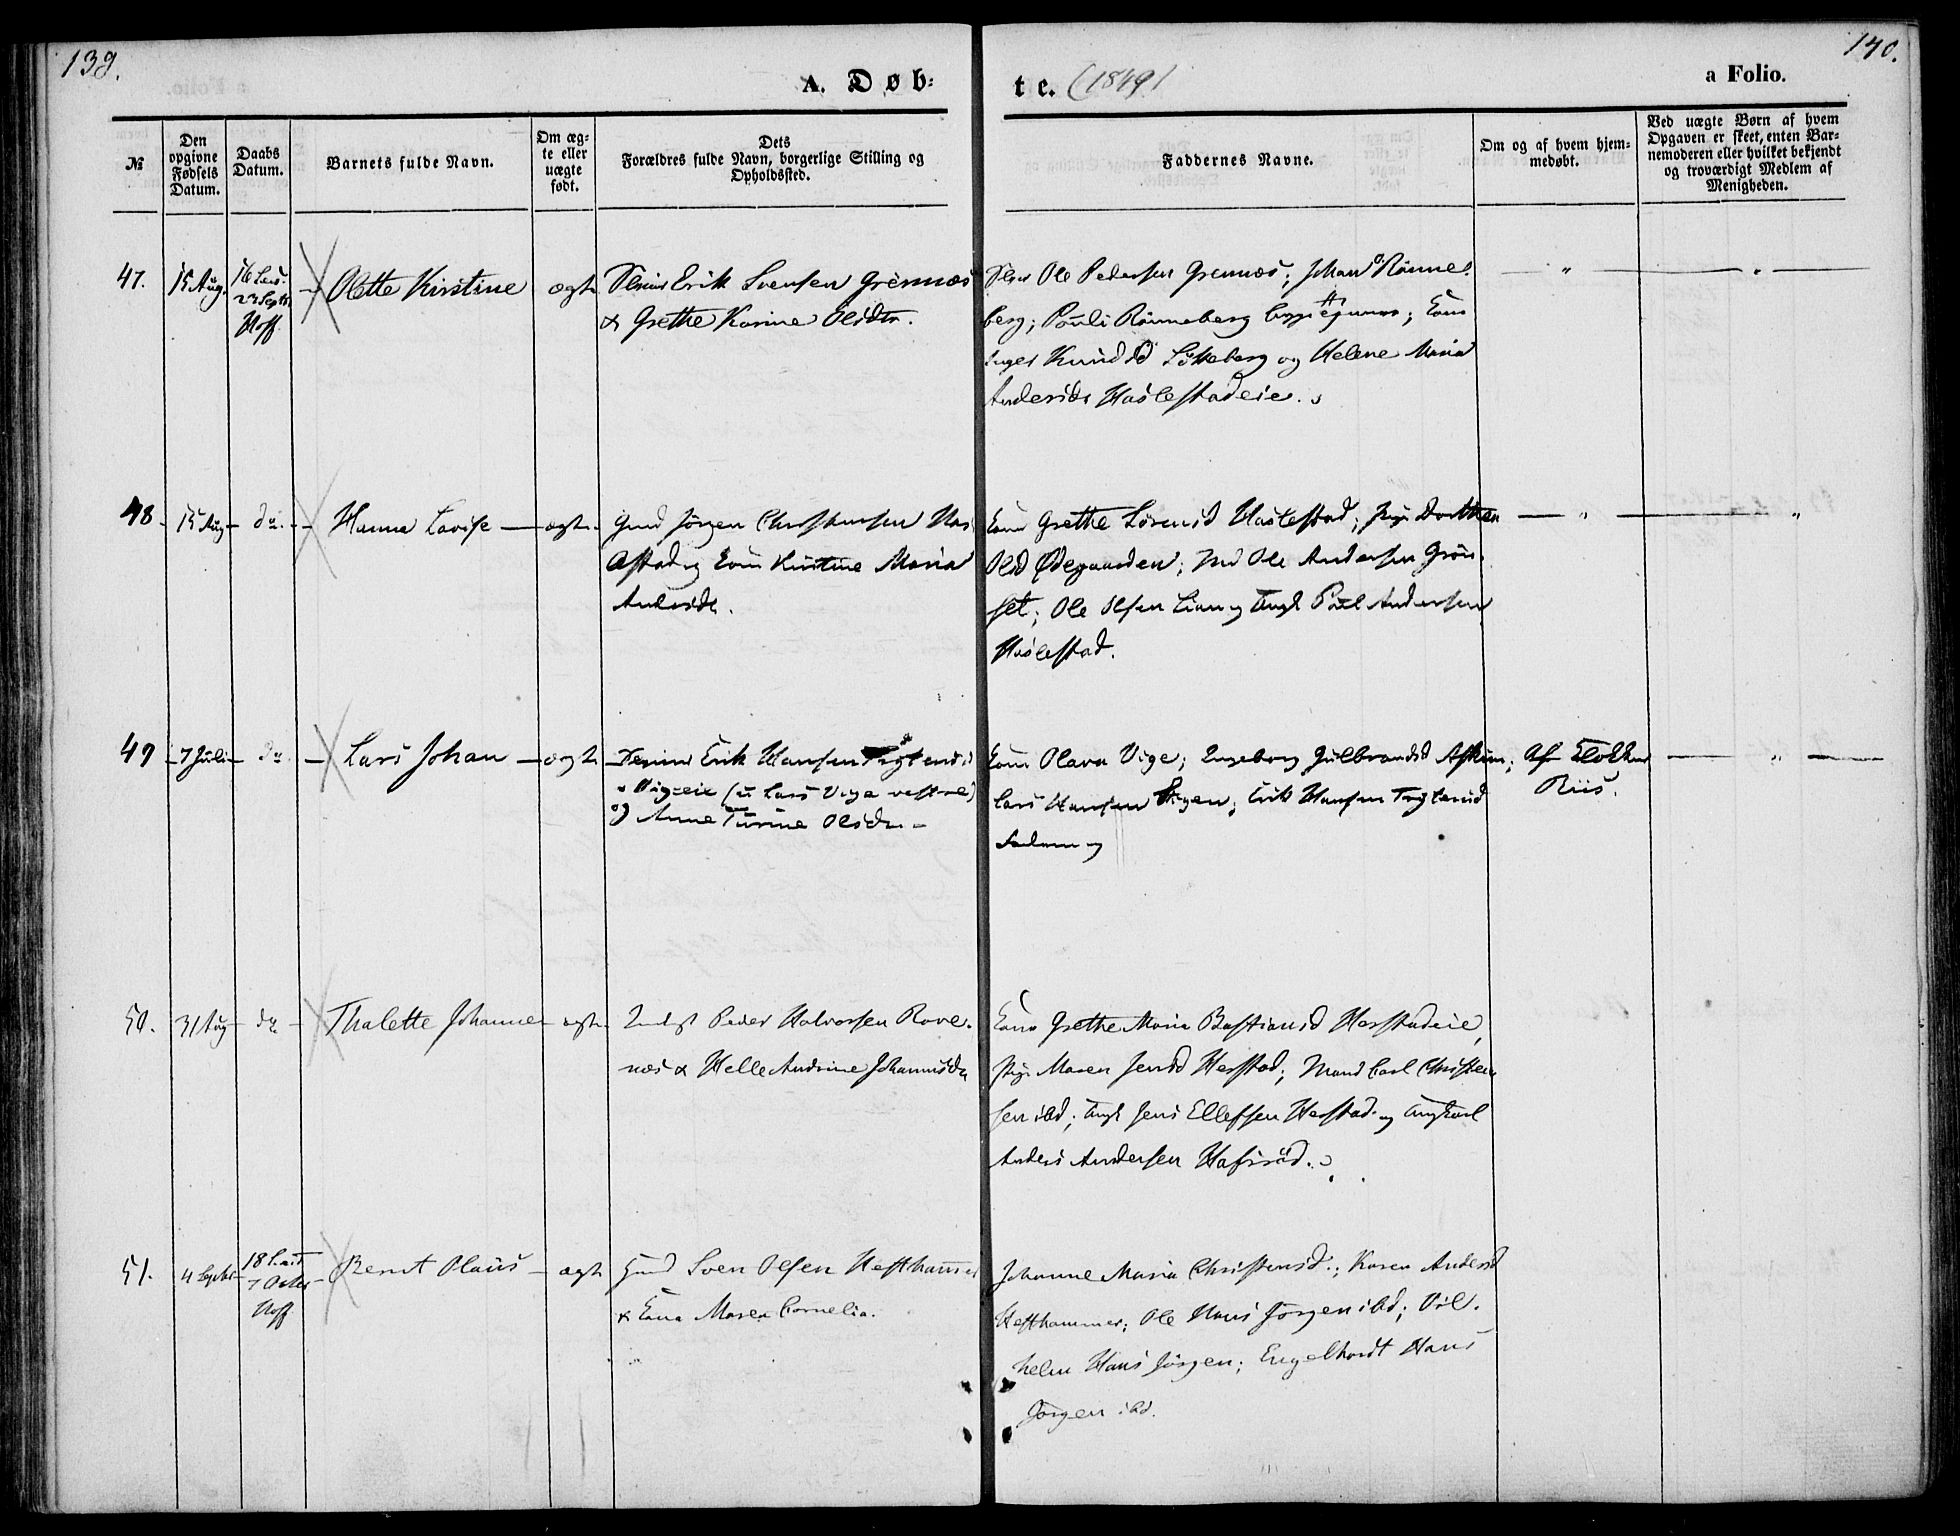 139.
140.
A. Døb-
te. (1849)
a Folio.
№
Den opgivne Fødsels Datum.
Daabs Datum.
Barnets fulde Navn.
Om ægte eller uægte født.
Dets Forældres fulde Navn, borgerlige Stilling og Opholdssted.
Faddernes Navne.
Om og af hvem hjemmedøbt.
Ved uægte Børn af hvem Opgaven er skeet, enten Barnemoderen eller hvilket bekjendt og troværdigt Medlem af Menigheden.
47. 15 Aug. 16 Hoff. Olette Kirstine ægte
Erik Svensen Grennæs
& Grethe Karine Olsdtr.
Ole Pedersen Grennæs; Johan Rönne-
berg; Pouli Rönneberg
Inger Knudsd og Helene Maria
Andersdr Haslestadeie.
48 15 Aug do Hanna Lovise ægte
Gmd Jörgen Christensen
Kirstine Maria
Andersdr.
Kone Grethe Sörensd Haslestad; Pige Dorthea
Olsd Ødegaarden; Ole Andersen Grön-
set; Ole Olsen Lian og Ungk Poul Andersen
Haslestad.
49 7 Juli do Lars Johan ægte
Erik Hansen
Vig-eie (u Lars Vige vestre)
og Anne Turine Olsdtr
Kone Olava Vige; Ingeborg Gulbrandsd Askim;
Lars Hansen Erik Hansen
Faderen og
Af Klokker
Riis.
50. 31 Aug do Thalette Johanne ægte
Inds Peder Halvorsen Rove-
næs & Helle Andrine Johannisdr
Kone Grethe Maria Bastiansd Herstadeie,
Pige Maren Jensd Herstad; Mand Carl Christen
sen ibd; Ungk Jens Ellefsen Herstad og Ungkarl
Anders Andersen Hafsröd.
51. 4 Septbr 18 7 Octbr Hoff Bernt Olaus ægte
Gmd Sven Olsen Hefthammer
& Kone Maren Cornelia.
Johanne Maria Christensd.; Karen Andersd
Hefthammer; Ole Hans Jörgen ibd; Vil-
helm Hans Jörgen; Engelhardt Hans
Jörgen ibd.